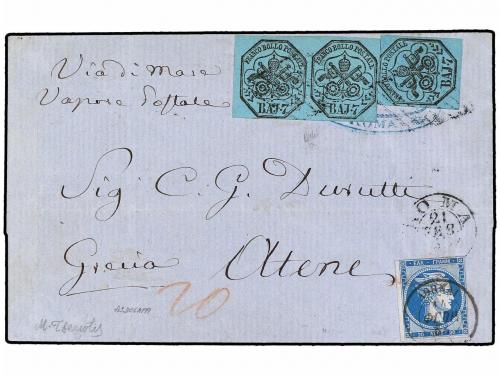 FRANCO BOLLO POSTALE FRANCO BOLLO POSTALE POSTALE
BAJ-7 BAJ-7 BAJ-7
Via di Mare
Vapore Postale
ROMA
Sig C. G. Durutti
ROMA
21
Grecia Atene
20
ΕΛΛ. ΓΡΑΜΜ.
20 20